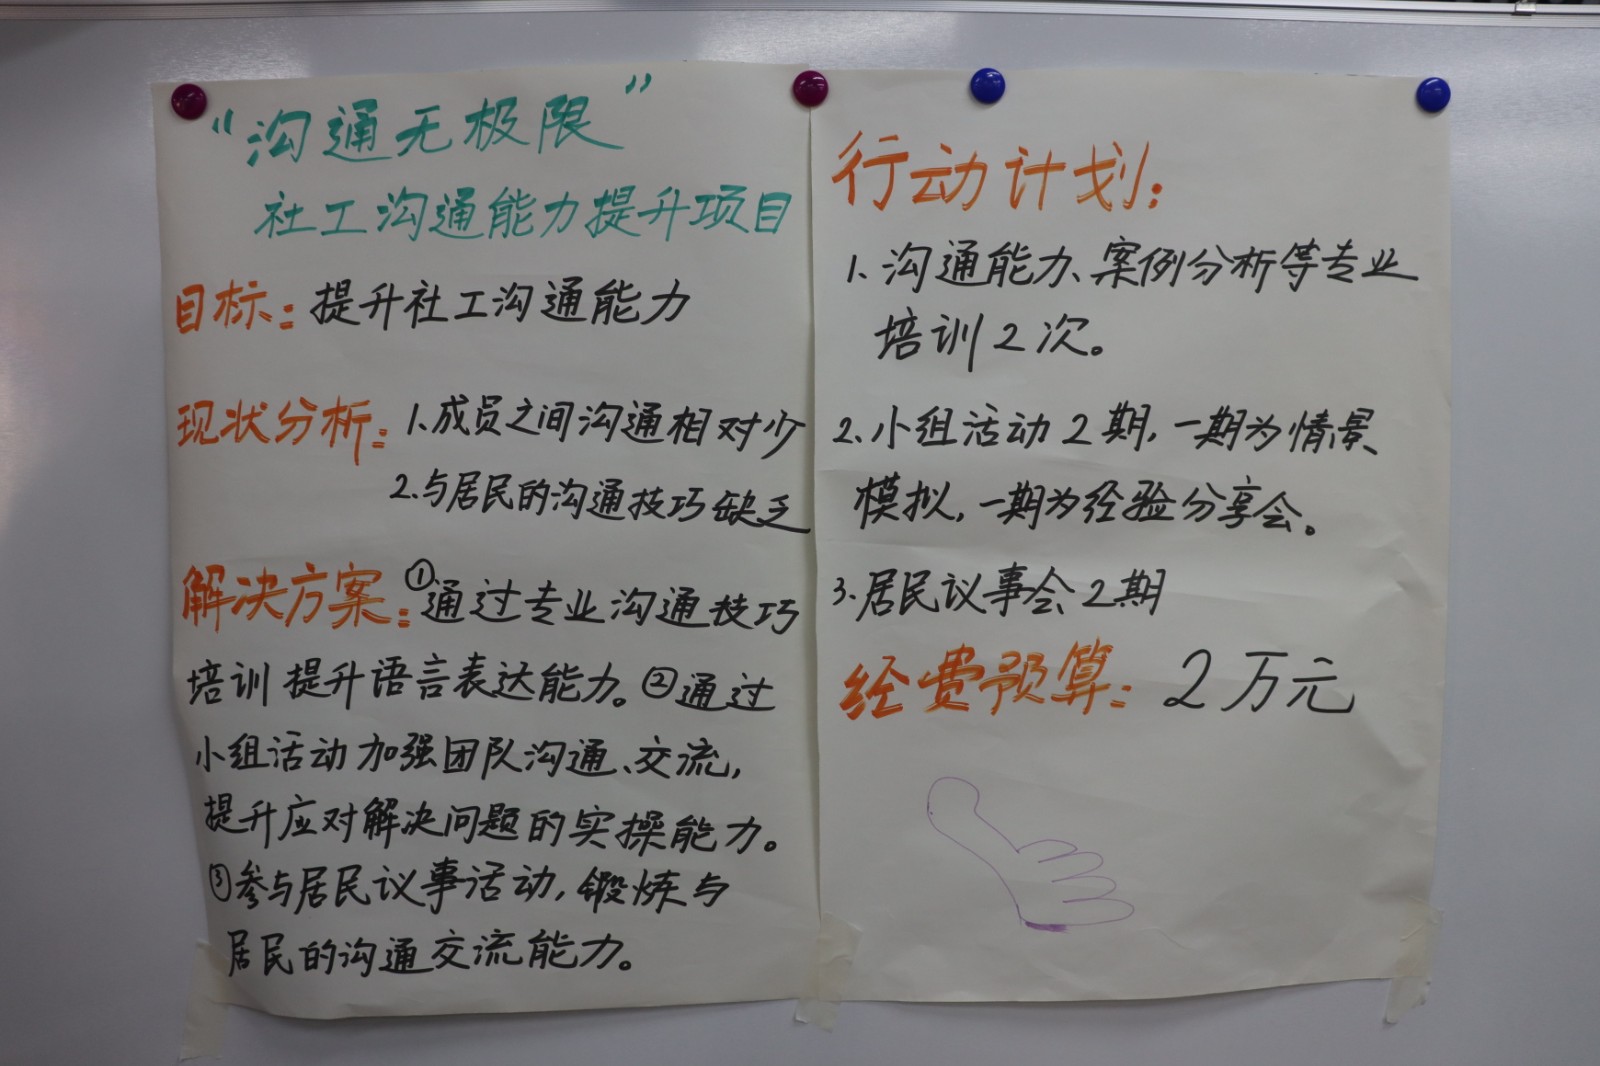 “沟通无极限”
社工沟通能力提升项目
目标：提升社工沟通能力
现状分析：1.成员之间沟通相对少
2.与居民的沟通技巧缺乏
解决方案：①通过专业沟通技巧
培训提升语言表达能力。②通过
小组活动加强团队沟通、交流，
提升应对解决问题的实操能力。
③参与居民议事活动，锻炼与
居民的沟通交流能力。
行动计划：
1.沟通能力、案例分析等专业
培训2次。
2.小组活动2期，一期为情景
模拟，一期为经验分享会。
3.居民议事会2期
经费预算：2万元